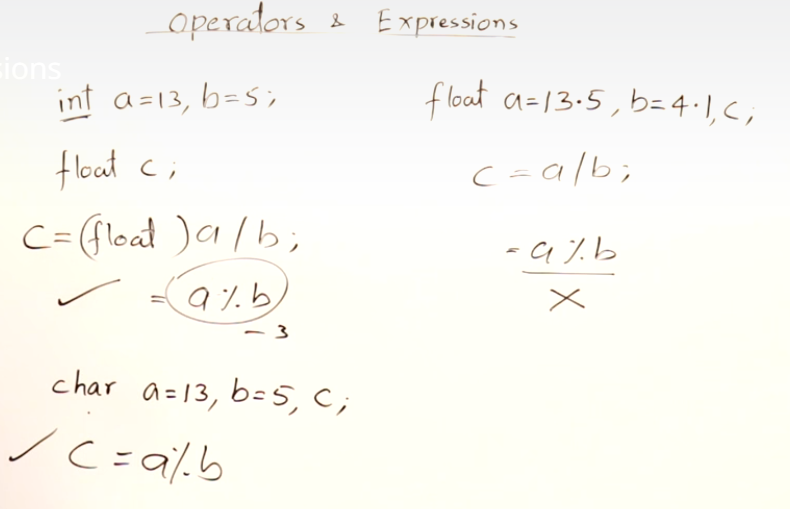 Operators & Expressions
sions
int a=13, b=5;
float c;
C=(float )a/b;
✓ = a%b
- 3
char a=13, b=5, C;
✓ C=a%b
float a=13.5, b=4.1, c;
c=a/b;
= a%b
X